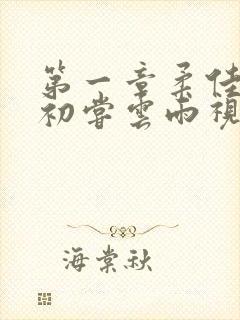 第一章柔佳
初尝雲雨視
海棠秋